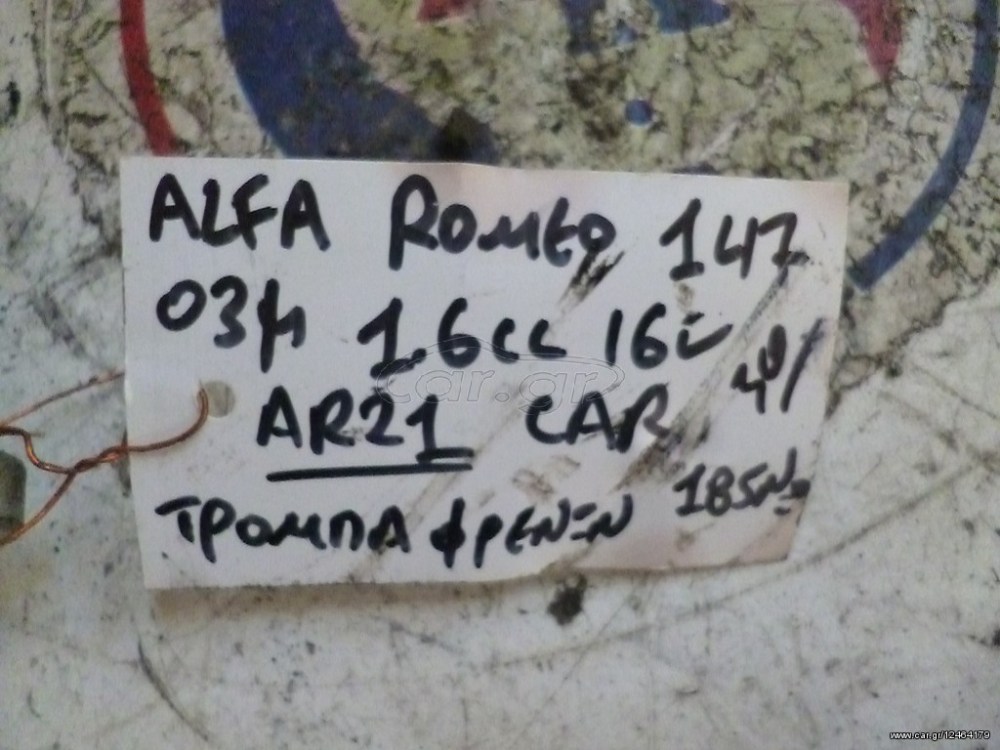 ALFA ROMEO 147
03μ 1.6cc 16v
AR21 CAR
ΤΡΟΜΠΑ ΦΡΕΝΩΝ 185Nο
car.gr
www.car.gr/12464179